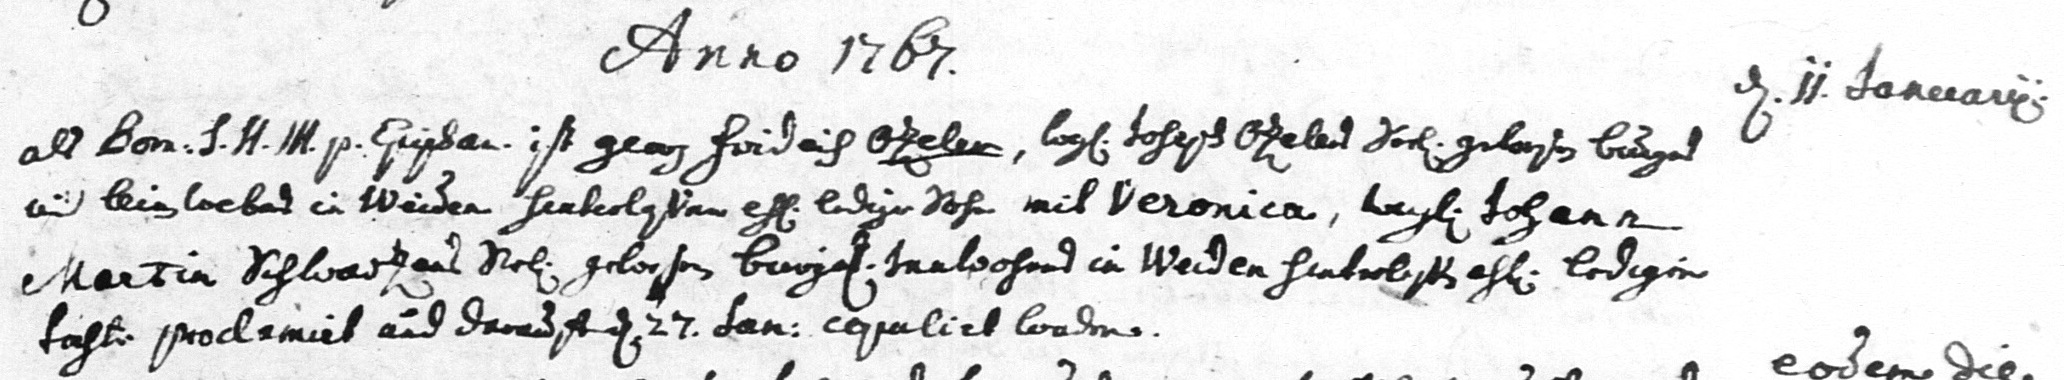 Anno 1767.
d. 11. Januarij.
als Dom. I. II. III. p. Epiphan. ist Georg Fridrich Ezeler, weyl. Joseph Ezelers Seel. gewesen burgers
und Leinwebers in Weiden hinterlaßner ehl. lediger Sohn mit Veronica, weyl. Johann
Martin Schwarzens Seel. gewesen burgerl. Innwohners in Weiden hinterlaßn ehl. ledigen
Tocht. proclamirt und darauf d. 27. Jan: copulirt worden.
eodem die